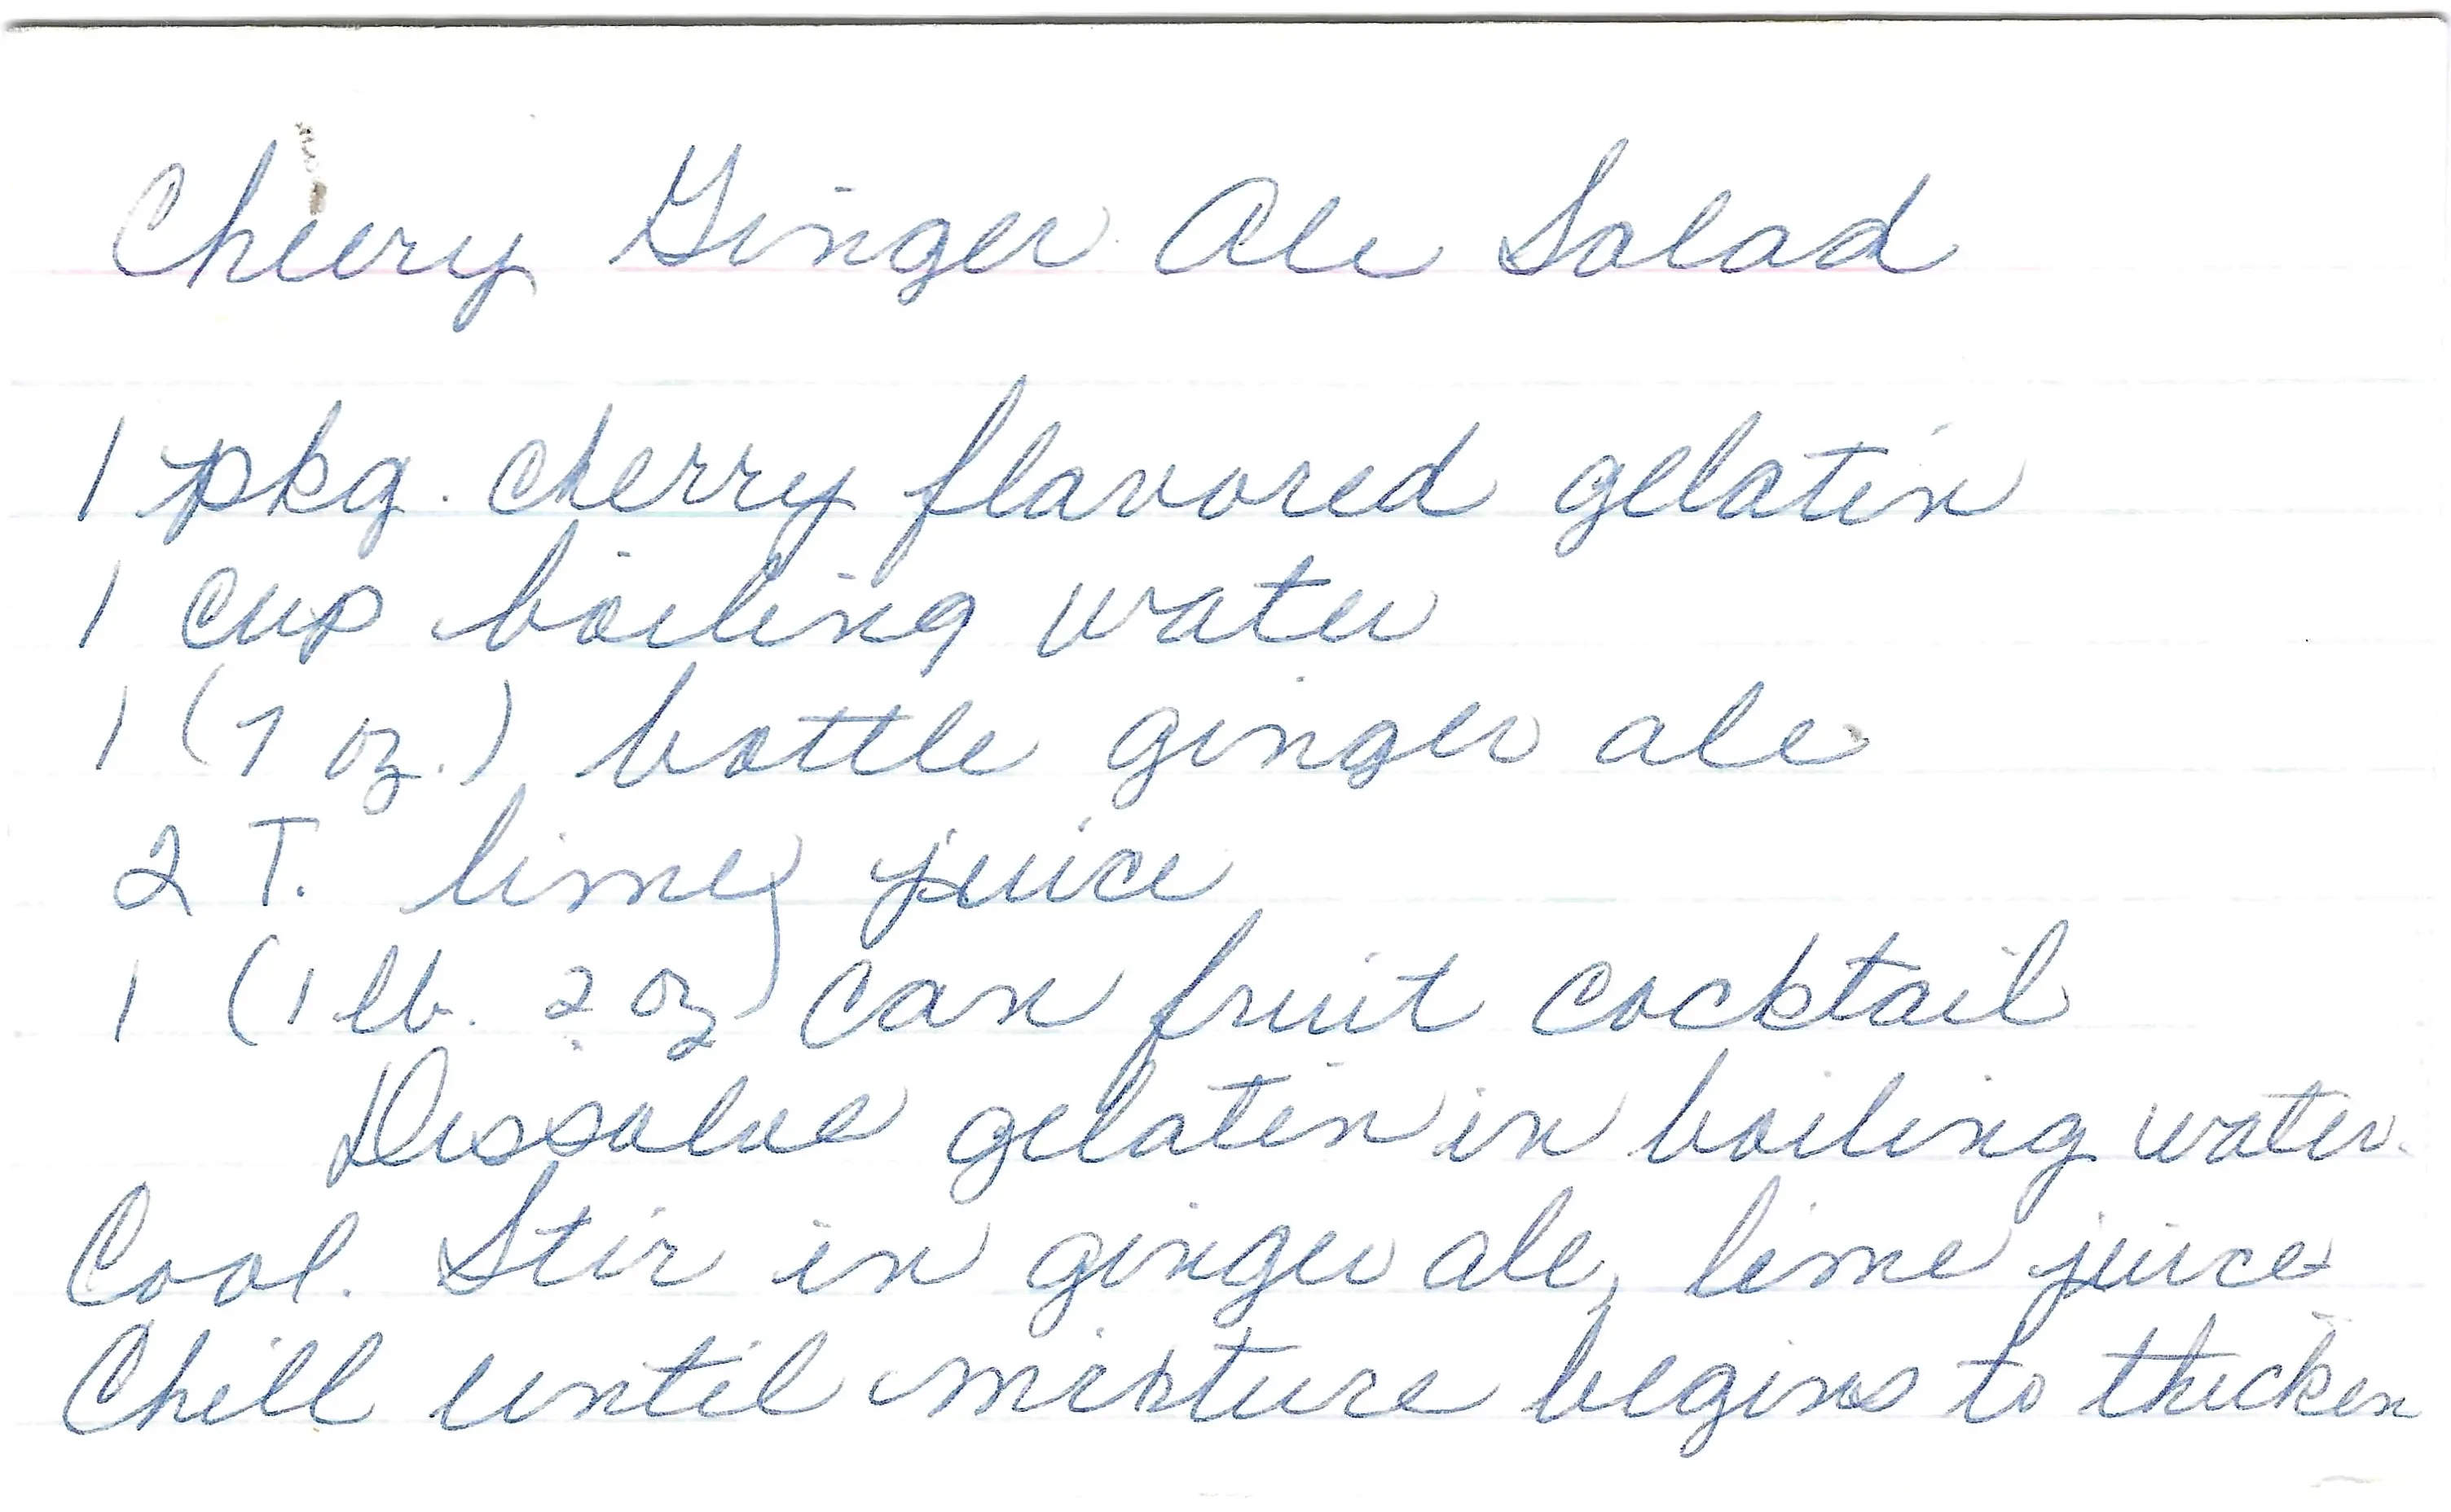 Cheery Ginger Ale Salad
1 pkg. cherry flavored gelatin
1 cup boiling water
1 (7 oz.) bottle ginger ale
2 T. lime juice
1 (1 lb. 2 oz) can fruit cocktail
Dissolve gelatin in boiling water.
Cool. Stir in ginger ale, lime juice
Chill until mixture begins to thicken